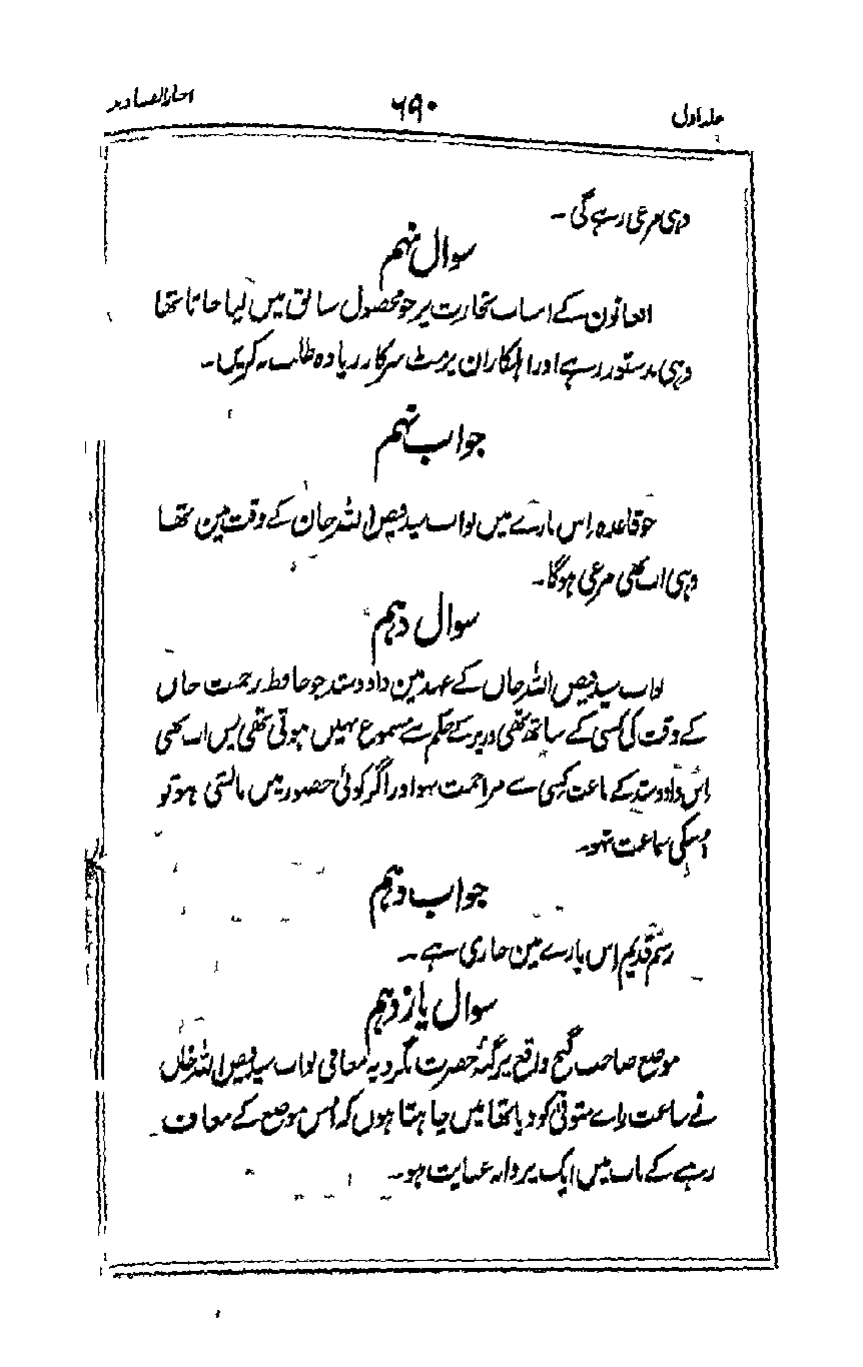 جلد اول ۶۹۰ اخبار الصنادید
وہی مرعی رہے گی۔
سوال نہم
افغانون کے اسباب تجارت پر جو محصول سابق میں لیا جاتا تھا
وہی بدستور رہے اور اہلکاران پرمٹ سرکار زیادہ طلب نہ کریں۔
جواب نہم
جو قاعدہ اِس بارے میں نواب سید فیض اللہ خان کے وقت مین تھا
وہی اب بھی مرعی ہوگا۔
سوال دہم
نواب سید فیض اللہ خاں کے عہد مین داد و ستد جو حافظ رحمت خاں
کے وقت کی کسی کے ساتھ تھی وزیر کے حکم سے مسموع نہیں ہوتی تھی پس اب بھی
اس داد و ستد کے باعث کِسی سے مزاحمت نہو اور اگر کوئی حضور میں نالشی ہو تو
اُسکی سماعت نہو۔
جواب دہم
رسم قدیم اِس بارے مین جاری ہے۔
سوال یازدہم
موضع صاحب گنج واقع پرگنۂ حضرت نگر وجہ معافی نواب سید فیض اللہ خاں
نے ساعت راے متوفی کو دیا تھا میں چاہتا ہوں کہ اُس موضع کے معاف
رہنے کے باب میں ایک پروانہ عنایت ہو۔